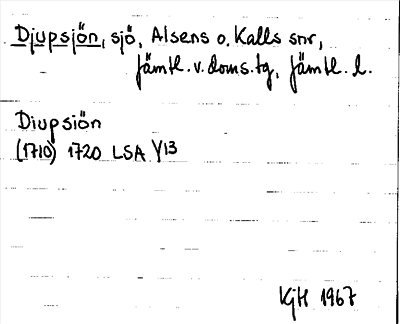 Djupsjön, sjö, Alsens o. Kalls snr,
Jämtl. v. doms.tg, Jämtl. l.
Diupsiön
(1710) 1720 LSA Y13
KjH 1967